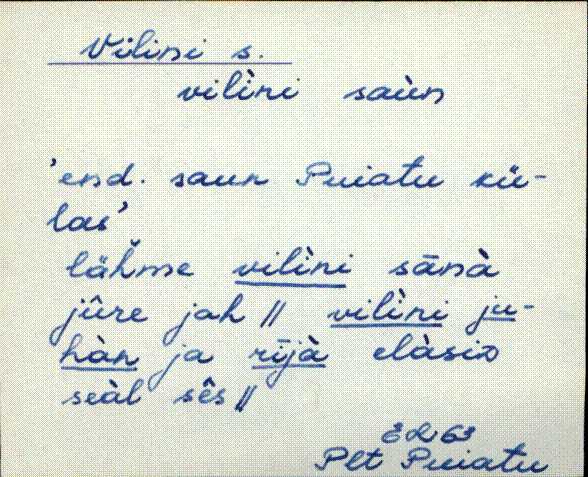 Vilini s.
vilìni saùn
'end. saun Puiatu kü-
las'
lähme vilìni sānà
jûre jah // vilìni ju-
hàn ja rījà elàsiɒ
seàl sês //
EL 63
Plt Puiatu